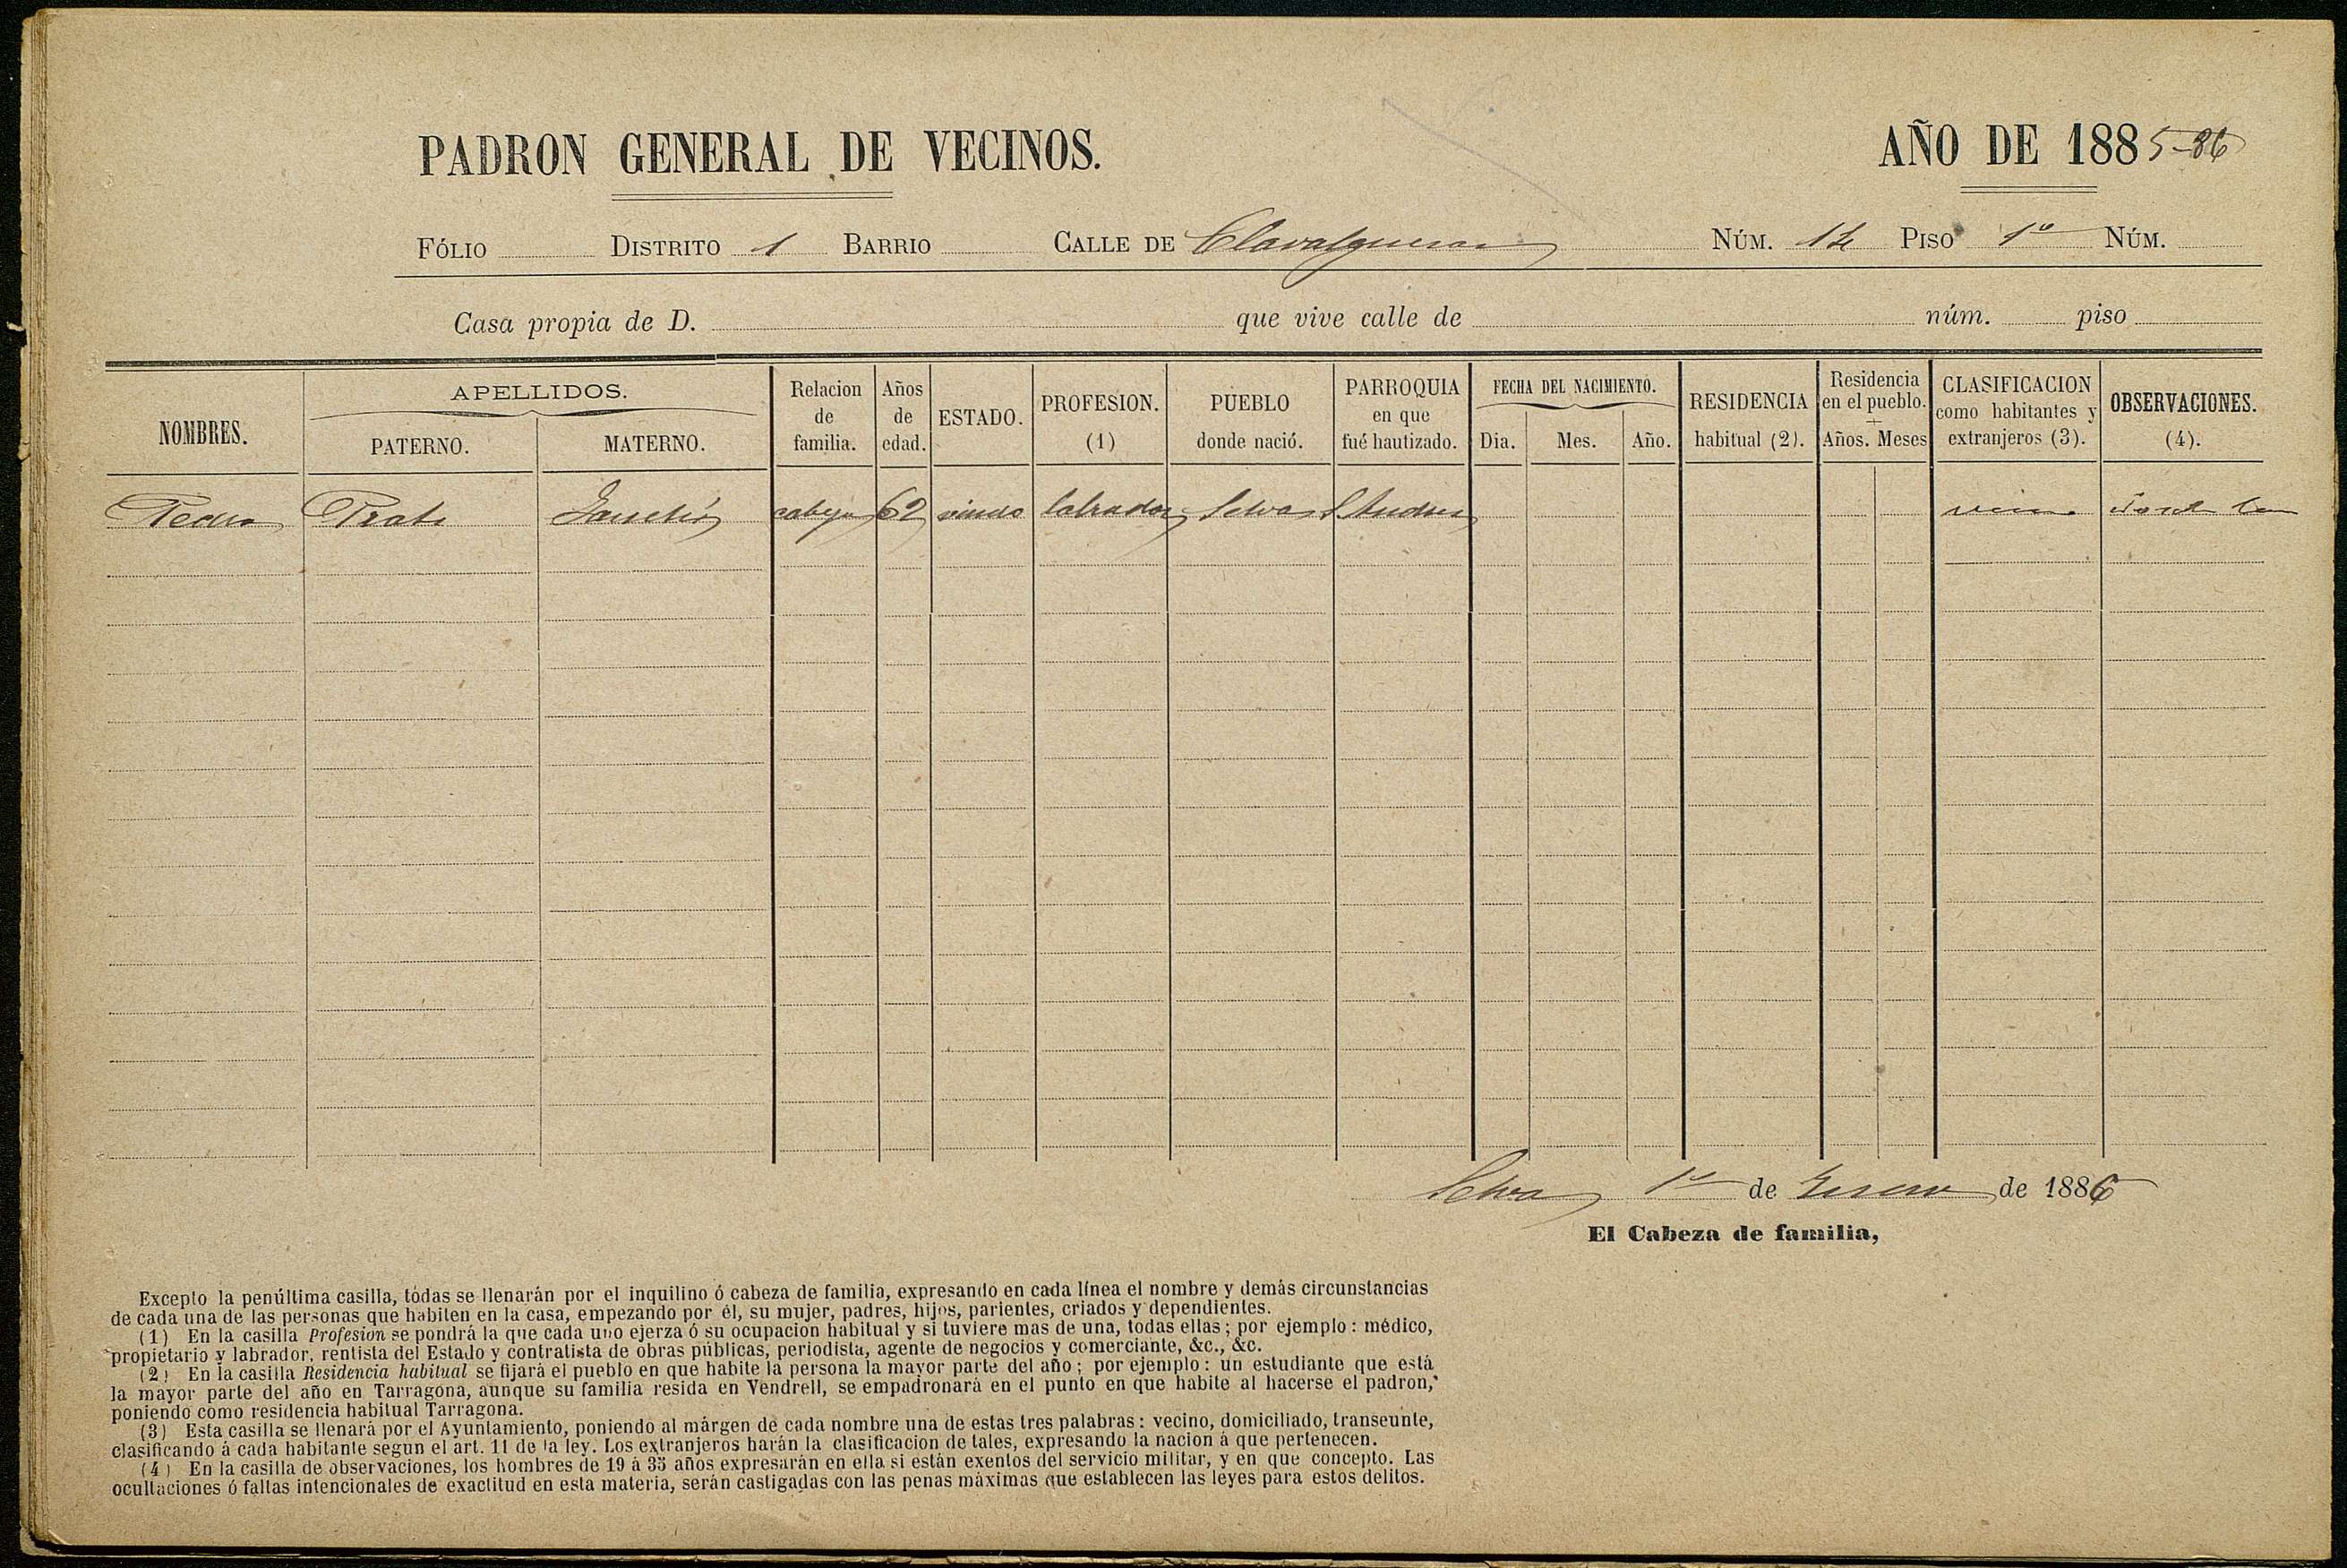 PADRON GENERAL DE VECINOS. AÑO DE 1885-86
FÓLIO DISTRITO 1 BARRIO CALLE DE NÚM. PISO 1º NÚM.
Casa propia de D. que vive calle de núm. piso
NOMBRES. APELLIDOS. PATERNO. MATERNO. Relacion de familia. Años de edad. ESTADO. PROFESION. (1) PUEBLO donde nació. PARROQUIA en que fué bautizado. FECHA DEL NACIMIENTO. Dia. Mes. Año. RESIDENCIA habitual (2). Residencia en el pueblo. Años. Meses CLASIFICACION como habitantes y extranjeros (3). OBSERVACIONES. (4).
Pedro Prats cabeza 62 viudo labrador Selva S. Andres vecino
Selva 1º de Enero de 1886
El Cabeza de familia,
Excepto la penúltima casilla, tódas se llenarán por el inquilino ó cabeza de familia, expresando en cada línea el nombre y demás circunstancias
de cada una de las personas que habiten en la casa, empezando por él, su mujer, padres, hijos, parientes, criados y dependientes.
(1) En la casilla Profesion se pondrá la que cada uno ejerza ó su ocupacion habitual y si tuviere mas de una, todas ellas; por ejemplo: médico,
propietario y labrador, rentista del Estado y contratista de obras públicas, periodista, agente de negocios y comerciante, &c., &c.
(2) En la casilla Residencia habitual se fijará el pueblo en que habite la persona la mayor parte del año; por ejemplo: un estudiante que está
la mayor parte del año en Tarragona, aunque su familia resida en Vendrell, se empadronará en el punto en que habite al hacerse el padron,
poniendo como residencia habitual Tarragona.
(3) Esta casilla se llenará por el Ayuntamiento, poniendo al márgen de cada nombre una de estas tres palabras: vecino, domiciliado, transeunte,
clasificando á cada habitante segun el art. 11 de la ley. Los extranjeros harán la clasificacion de tales, expresando la nacion á que pertenecen.
(4) En la casilla de observaciones, los hombres de 19 á 35 años expresarán en ella si están exentos del servicio militar, y en que concepto. Las
ocultaciones ó faltas intencionales de exactitud en esta materia, serán castigadas con las penas máximas que establecen las leyes para estos delitos.